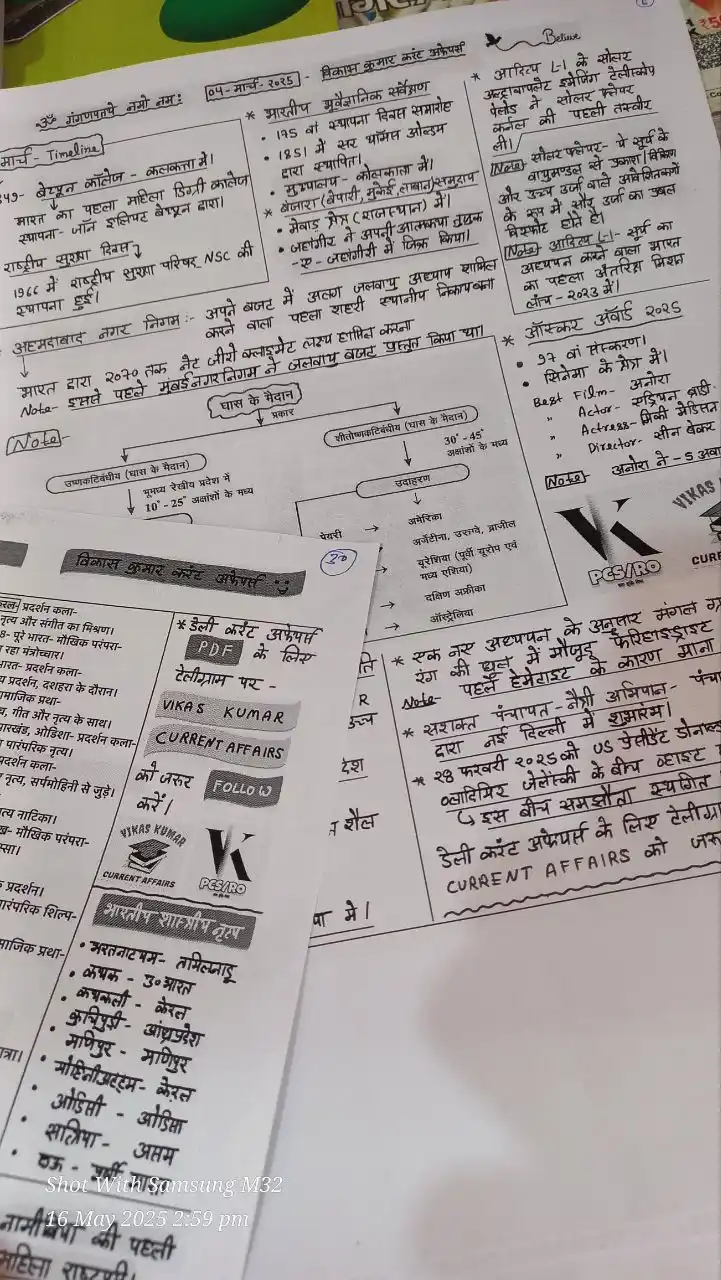 ॐ गंगणपतये नमो नमः
04-मार्च-2025 - विकास कुमार करंट अफेयर्स
Believe
मार्च - Timeline
849- बेथ्यून कॉलेज - कलकत्ता में।
भारत का पहला महिला डिग्री कालेज
स्थापना- जॉन इलियट बेथ्यून द्वारा।
राष्ट्रीय सुरक्षा दिवस
1966 में राष्ट्रीय सुरक्षा परिषद NSC की
स्थापना हुई।
* भारतीय भूवैज्ञानिक सर्वेक्षण
• 195 वां स्थापना दिवस समारोह
• 1851 में सर थॉमस ओल्डम
द्वारा स्थापित।
• मुख्यालय - कोलकाता में।
* बंजारा (बेपारी, मुकेरी, लाबान) समुदाय
• मेवाड़ क्षेत्र (राजस्थान) में।
• जहांगीर ने अपनी आत्मकथा तुजुक
-ए- जहांगीरी में जिक्र किया।
* आदित्य L-1 के सोलर
अल्ट्रावायलेट इमेजिंग टेलीस्कोप
पेलोड ने सोलर फ्लेयर
कर्नल की पहली तस्वीर
ली।
Note सोलर फ्लेयर- ये सूर्य के
वायुमण्डल से प्रकाश/विकिरण
और उच्च उर्जा वाले आवेशितकणों
के रूप में सौर उर्जा का प्रबल
विस्फोट होते है।
Note आदित्य L-1- सूर्य का
अध्ययन करने वाला भारत
का पहला अंतरिक्ष मिशन
लॉंच - 2023 में।
अहमदाबाद नगर निगम :- अपने बजट में अलग जलवायु अध्याय शामिल
करने वाला पहला शहरी स्थानीय निकाय बना
भारत द्वारा 2070 तक नेट जीरो क्लाइमेट लक्ष्य हासिल करना
Note- इससे पहले मुंबई नगर निगम ने जलवायु बजट प्रस्तुत किया था।
* ऑस्कर अवॉर्ड 2025
• 97 वां संस्करण।
• सिनेमा के क्षेत्र में।
Best Film- अनोरा
" Actor- एड्रियन ब्रॉडी
" Actress- मिकी मेडिसन
" Director- सीन बेकर
Note- अनोरा ने - 5 अवा
Note-
घास के मैदान
प्रकार
उष्णकटिबंधीय (घास के मैदान)
भूमध्य रेखीय प्रदेश में
10°-25° अक्षांशों के मध्य
शीतोष्णकटिबंधीय (घास के मैदान)
30°-45°
अक्षांशों के मध्य
उदाहरण
अमेरिका
अर्जेंटीना, उरुग्वे, ब्राजील
यूरेशिया (पूर्वी यूरोप एवं
मध्य एशिया)
दक्षिण अफ्रीका
ऑस्ट्रेलिया
PCS/RO
VIKAS
CURR
* एक नए अध्ययन के अनुसार मंगल ग्र
रंग की धूल में मौजूद फेरिहाइड्राइट
Note- पहले हेमेटाइट के कारण माना
* सशक्त पंचायत-नेत्री अभियान- पंचा
द्वारा नई दिल्ली में शुभारंभ।
* 28 फरवरी 2025 को US प्रेसीडेंट डोनाल्ड
व्लादिमिर जेलेंस्की के बीच व्हाइट
इस बीच समझौता स्थगित
डेली करंट अफेयर्स के लिए टेलीग्रा
CURRENT AFFAIRS को जरू
उच्च
देश
शैल
में।
विकास कुमार करंट अफेयर्स
30
प्रदर्शन कला-
नृत्य और संगीत का मिश्रण।
8- पूरे भारत- मौखिक परंपरा-
रहा मंत्रोच्चार।
भारत- प्रदर्शन कला-
प्रदर्शन, दशहरा के दौरान।
सामाजिक प्रथा-
गीत और नृत्य के साथ।
झारखंड, ओडिशा- प्रदर्शन कला-
पारंपरिक नृत्य।
प्रदर्शन कला-
नृत्य, सर्पमोहिनी से जुड़े।
नृत्य नाटिका।
मौखिक परंपरा-
प्रदर्शन।
पारंपरिक शिल्प-
सामाजिक प्रथा-
* डेली करंट अफेयर्स
PDF के लिए
टेलीग्राम पर -
VIKAS KUMAR
CURRENT AFFAIRS
को जरूर FOLLOW
करें।
VIKAS KUMAR
CURRENT AFFAIRS
PCS/RO
भारतीय शास्त्रीय नृत्य
• भरतनाट्यम- तामिलनाडू
• कथक - उ० भारत
• कथकली - केरल
• कुचिपुड़ी - आंध्रप्रदेश
• मणिपुर - मणिपुर
• मोहिनीअट्टम- केरल
• ओडिसी - ओडिसा
• सत्रिया - असम
Shot With Samsung M32
16 May 2025 2:59 pm
नामीबिया की पहली
महिला राष्ट्रपति।